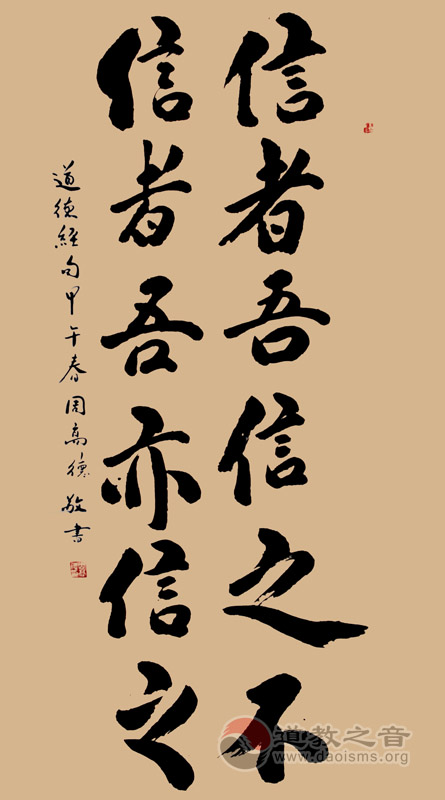 信者吾信之不
信者吾亦信之
道德經句甲午春周高德敬書
道教之音
www.daoisms.org